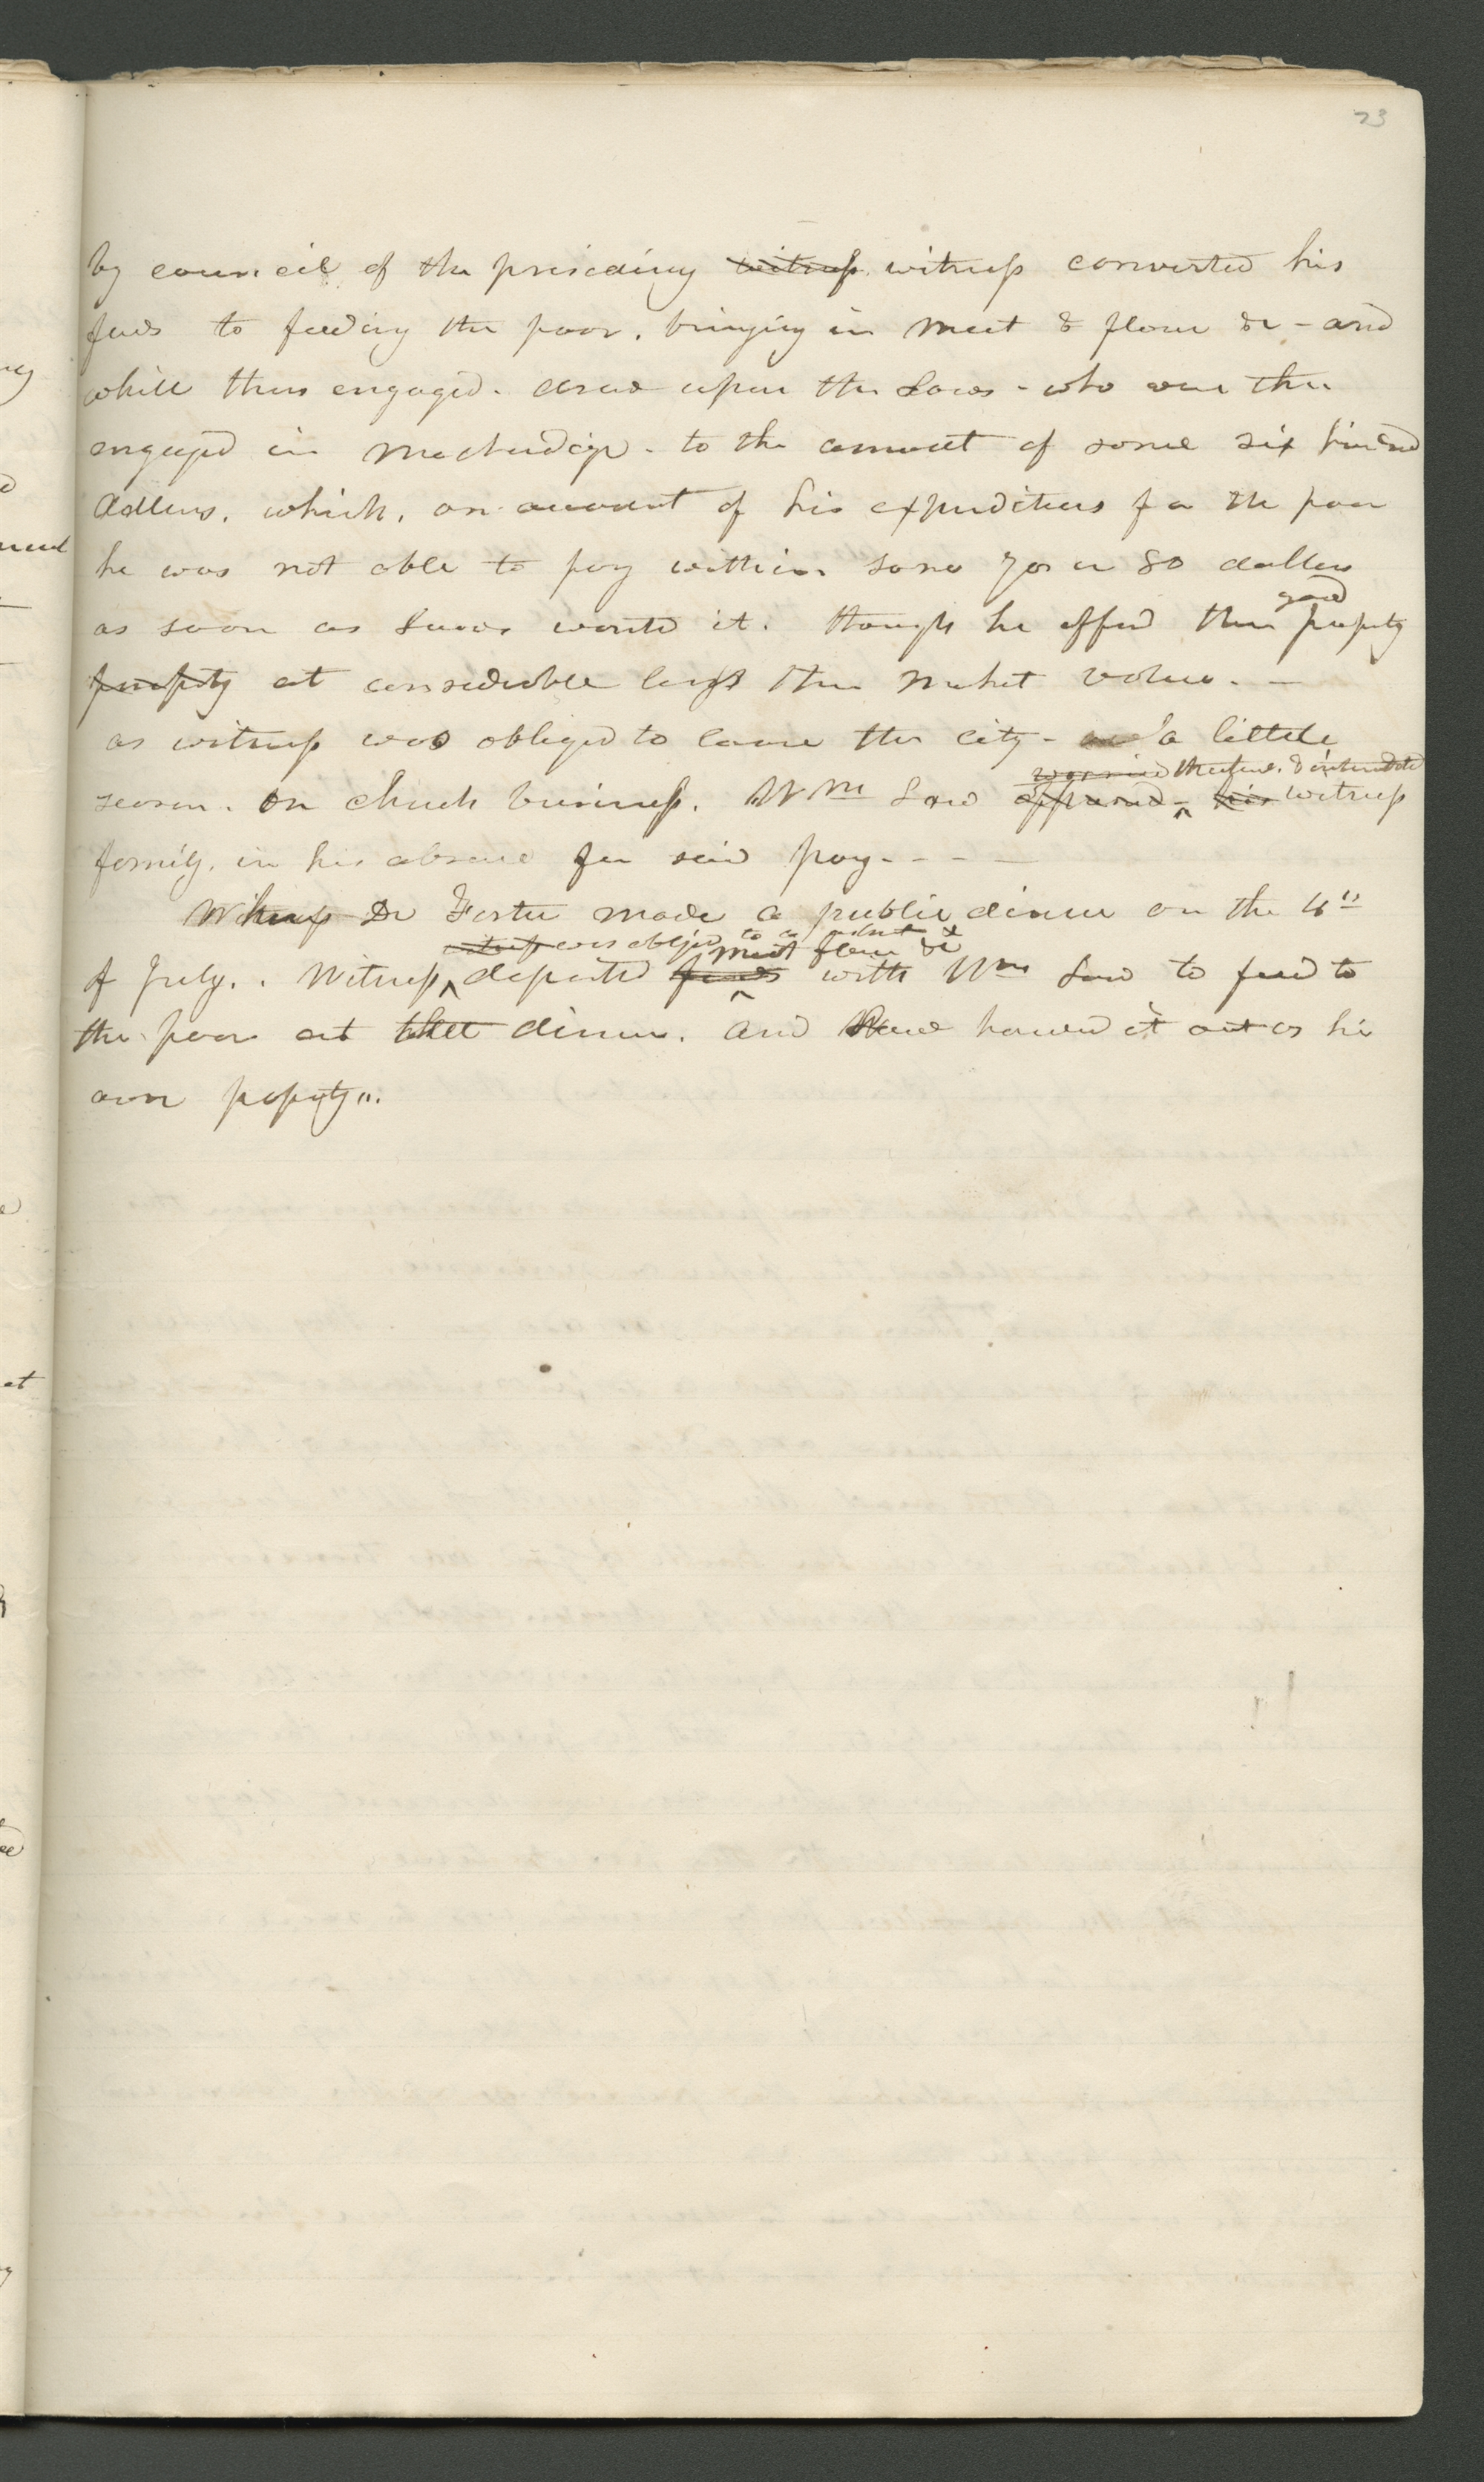 23
by council of the prisceding witness witness converted his
funds to feeding the poor. bringing in meet & flour &c - and
while thus engaged. drew upon the Laws - who were then
engaged in mechndize - to the amount of some six hundred
dollers. which, on account of his expenditures for the poor
he was not able to pay within some 70 or 80 dollers
as soon as Laws wantd it. though he offerd them good property
property at considerable less than market value. -
as witness was obliged to leave the city - a little
season. on church business. Wm Law witness
family. in his absence for said pay - - - -
Witness Dr Foster made a public dinner on the 4th
was obliged to be absent &
meat flour &c
of July. . Witness deposited funds with Wm Law to feed to
the poor at that dinner. and Law handed it out as his
own property".